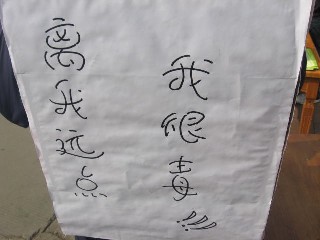 离我远点
我很毒